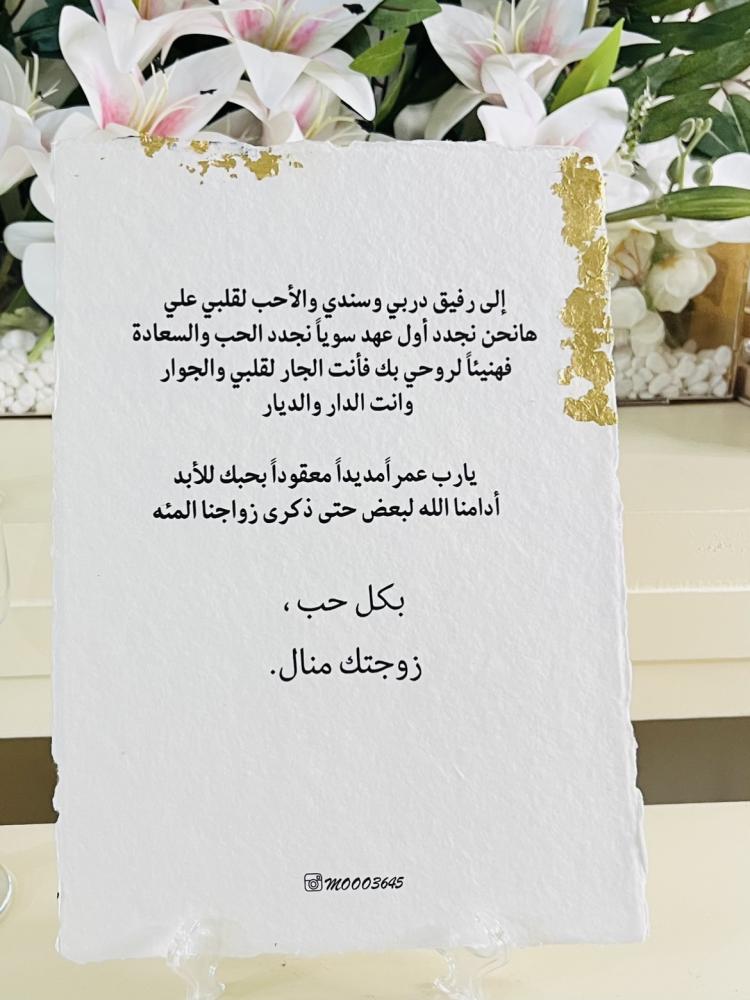 إلى رفيق دربي وسندي والأحب لقلبي علي
هانحن نجدد أول عهد سوياً نجدد الحب والسعادة
فهنيئاً لروحي بك فأنت الجار لقلبي والجوار
وانت الدار والديار
يارب عمراًمديداً معقوداً بحبك للأبد
أدامنا الله لبعض حتى ذكرى زواجنا المئه
بكل حب ،
زوجتك منال.
M0003645